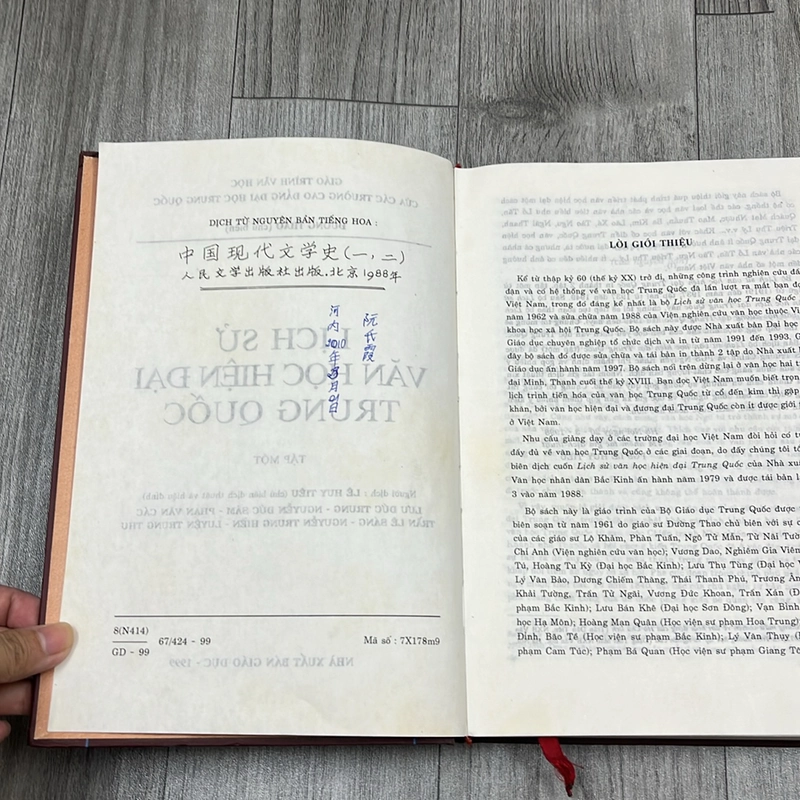 DỊCH TỪ NGUYÊN BẢN TIẾNG HOA :
中国现代文学史(一,二)
人民文学出版社出版.北京1988年
阮氏霞
河内2010年 月01日
8(N414)
GD - 99
67/424 - 99
Mã số : 7X178m9
LỜI GIỚI THIỆU
Kể từ thập kỷ 60 (thế kỷ XX) trở đi, những công trình nghiên cứu đầ
dặn và có hệ thống về văn học Trung Quốc đã lần lượt ra mắt bạn đọ
Việt Nam, trong đó đáng kể nhất là bộ Lịch sử văn học Trung Quốc
năm 1962 và sửa chữa năm 1988 của Viện nghiên cứu văn học thuộc Vi
khoa học xã hội Trung Quốc. Bộ sách này được Nhà xuất bản Đại học
Giáo dục chuyên nghiệp tổ chức dịch và in từ năm 1991 đến 1993. G
đây bộ sách đó được sửa chữa và tái bản in thành 2 tập do Nhà xuất
Giáo dục ấn hành năm 1997. Bộ sách nói trên dừng lại ở văn học hai t
đại Minh, Thanh cuối thế kỷ XVIII. Bạn đọc Việt Nam muốn biết trọn
lịch trình tiến hóa của văn học Trung Quốc từ cổ đến kim thì gặp
khăn, bởi văn học hiện đại và đương đại Trung Quốc còn ít được giới t
ở Việt Nam.
Nhu cầu giảng dạy ở các trường đại học Việt Nam đòi hỏi có t
đầy đủ về văn học Trung Quốc ở các giai đoạn, do đấy chúng tôi tổ
biên dịch cuốn Lịch sử văn học hiện đại Trung Quốc của Nhà xuấ
Văn học nhân dân Bắc Kinh ấn hành năm 1979 và được tái bản l
3 vào năm 1988.
Bộ sách này là giáo trình của Bộ Giáo dục Trung Quốc được
biên soạn từ năm 1961 do giáo sư Đường Thao chủ biên với sự c
của các giáo sư Lộ Khảm, Phàn Tuấn, Ngô Tử Mẫn, Từ Nãi Tườ
Chí Anh (Viện nghiên cứu văn học); Vương Dao, Nghiêm Gia Viêm
Tú, Hoàng Tu Kỷ (Đại học Bắc Kinh); Lưu Thụ Tùng (Đại học V
Lý Văn Bảo, Dương Chiếm Thăng, Thái Thanh Phú, Trương Ân
Khải Tường, Trần Tử Ngải, Vương Đức Khoan, Trần Xán (Đ
phạm Bắc Kinh); Lưu Bán Khê (Đại học Sơn Đông); Vạn Bình
học Hạ Môn); Hoàng Mạn Quân (Học viện sư phạm Hoa Trung)
Đình, Bão Tề (Học viện sư phạm Bắc Kinh); Lý Văn Thụy (H
phạm Cam Túc); Phạm Bá Quan (Học viện sư phạm Giang Tô